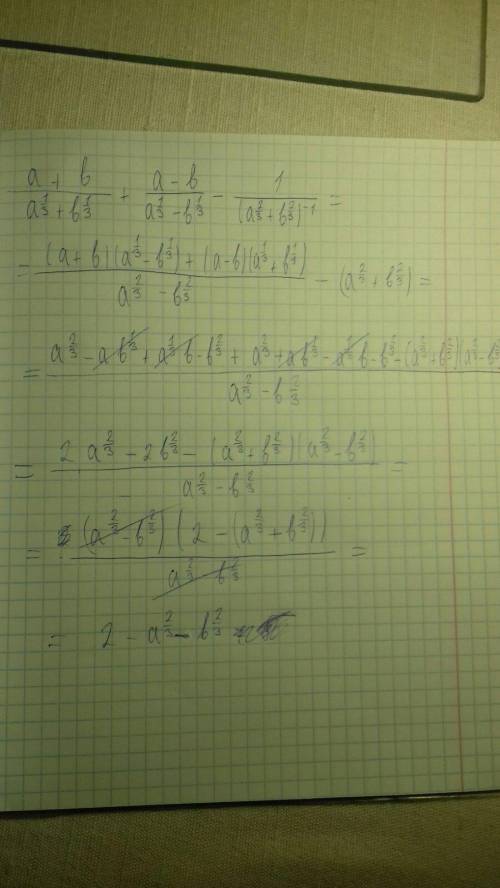 (a + b)/(a^(1/3) + b^(1/3)) + (a - b)/(a^(1/3) - b^(1/3)) - 1/(a^(2/3) + b^(2/3))^(-1) =
= ((a + b)(a^(1/3) - b^(1/3)) + (a - b)(a^(1/3) + b^(1/3)))/(a^(2/3) - b^(2/3)) - (a^(2/3) + b^(2/3)) =
= (a^(2/3) - a b^(1/3) + a^(1/3) b - b^(2/3) + a^(2/3) + a b^(1/3) - a^(1/3) b - b^(2/3) - (a^(2/3) + b^(2/3))(a^(2/3) - b^(2/3)))/(a^(2/3) - b^(2/3))
= (2 a^(2/3) - 2 b^(2/3) - (a^(2/3) + b^(2/3))(a^(2/3) - b^(2/3)))/(a^(2/3) - b^(2/3)) =
= (a^(2/3) - b^(2/3))(2 - (a^(2/3) + b^(2/3)))/(a^(2/3) - b^(2/3)) =
= 2 - a^(2/3) - b^(2/3)